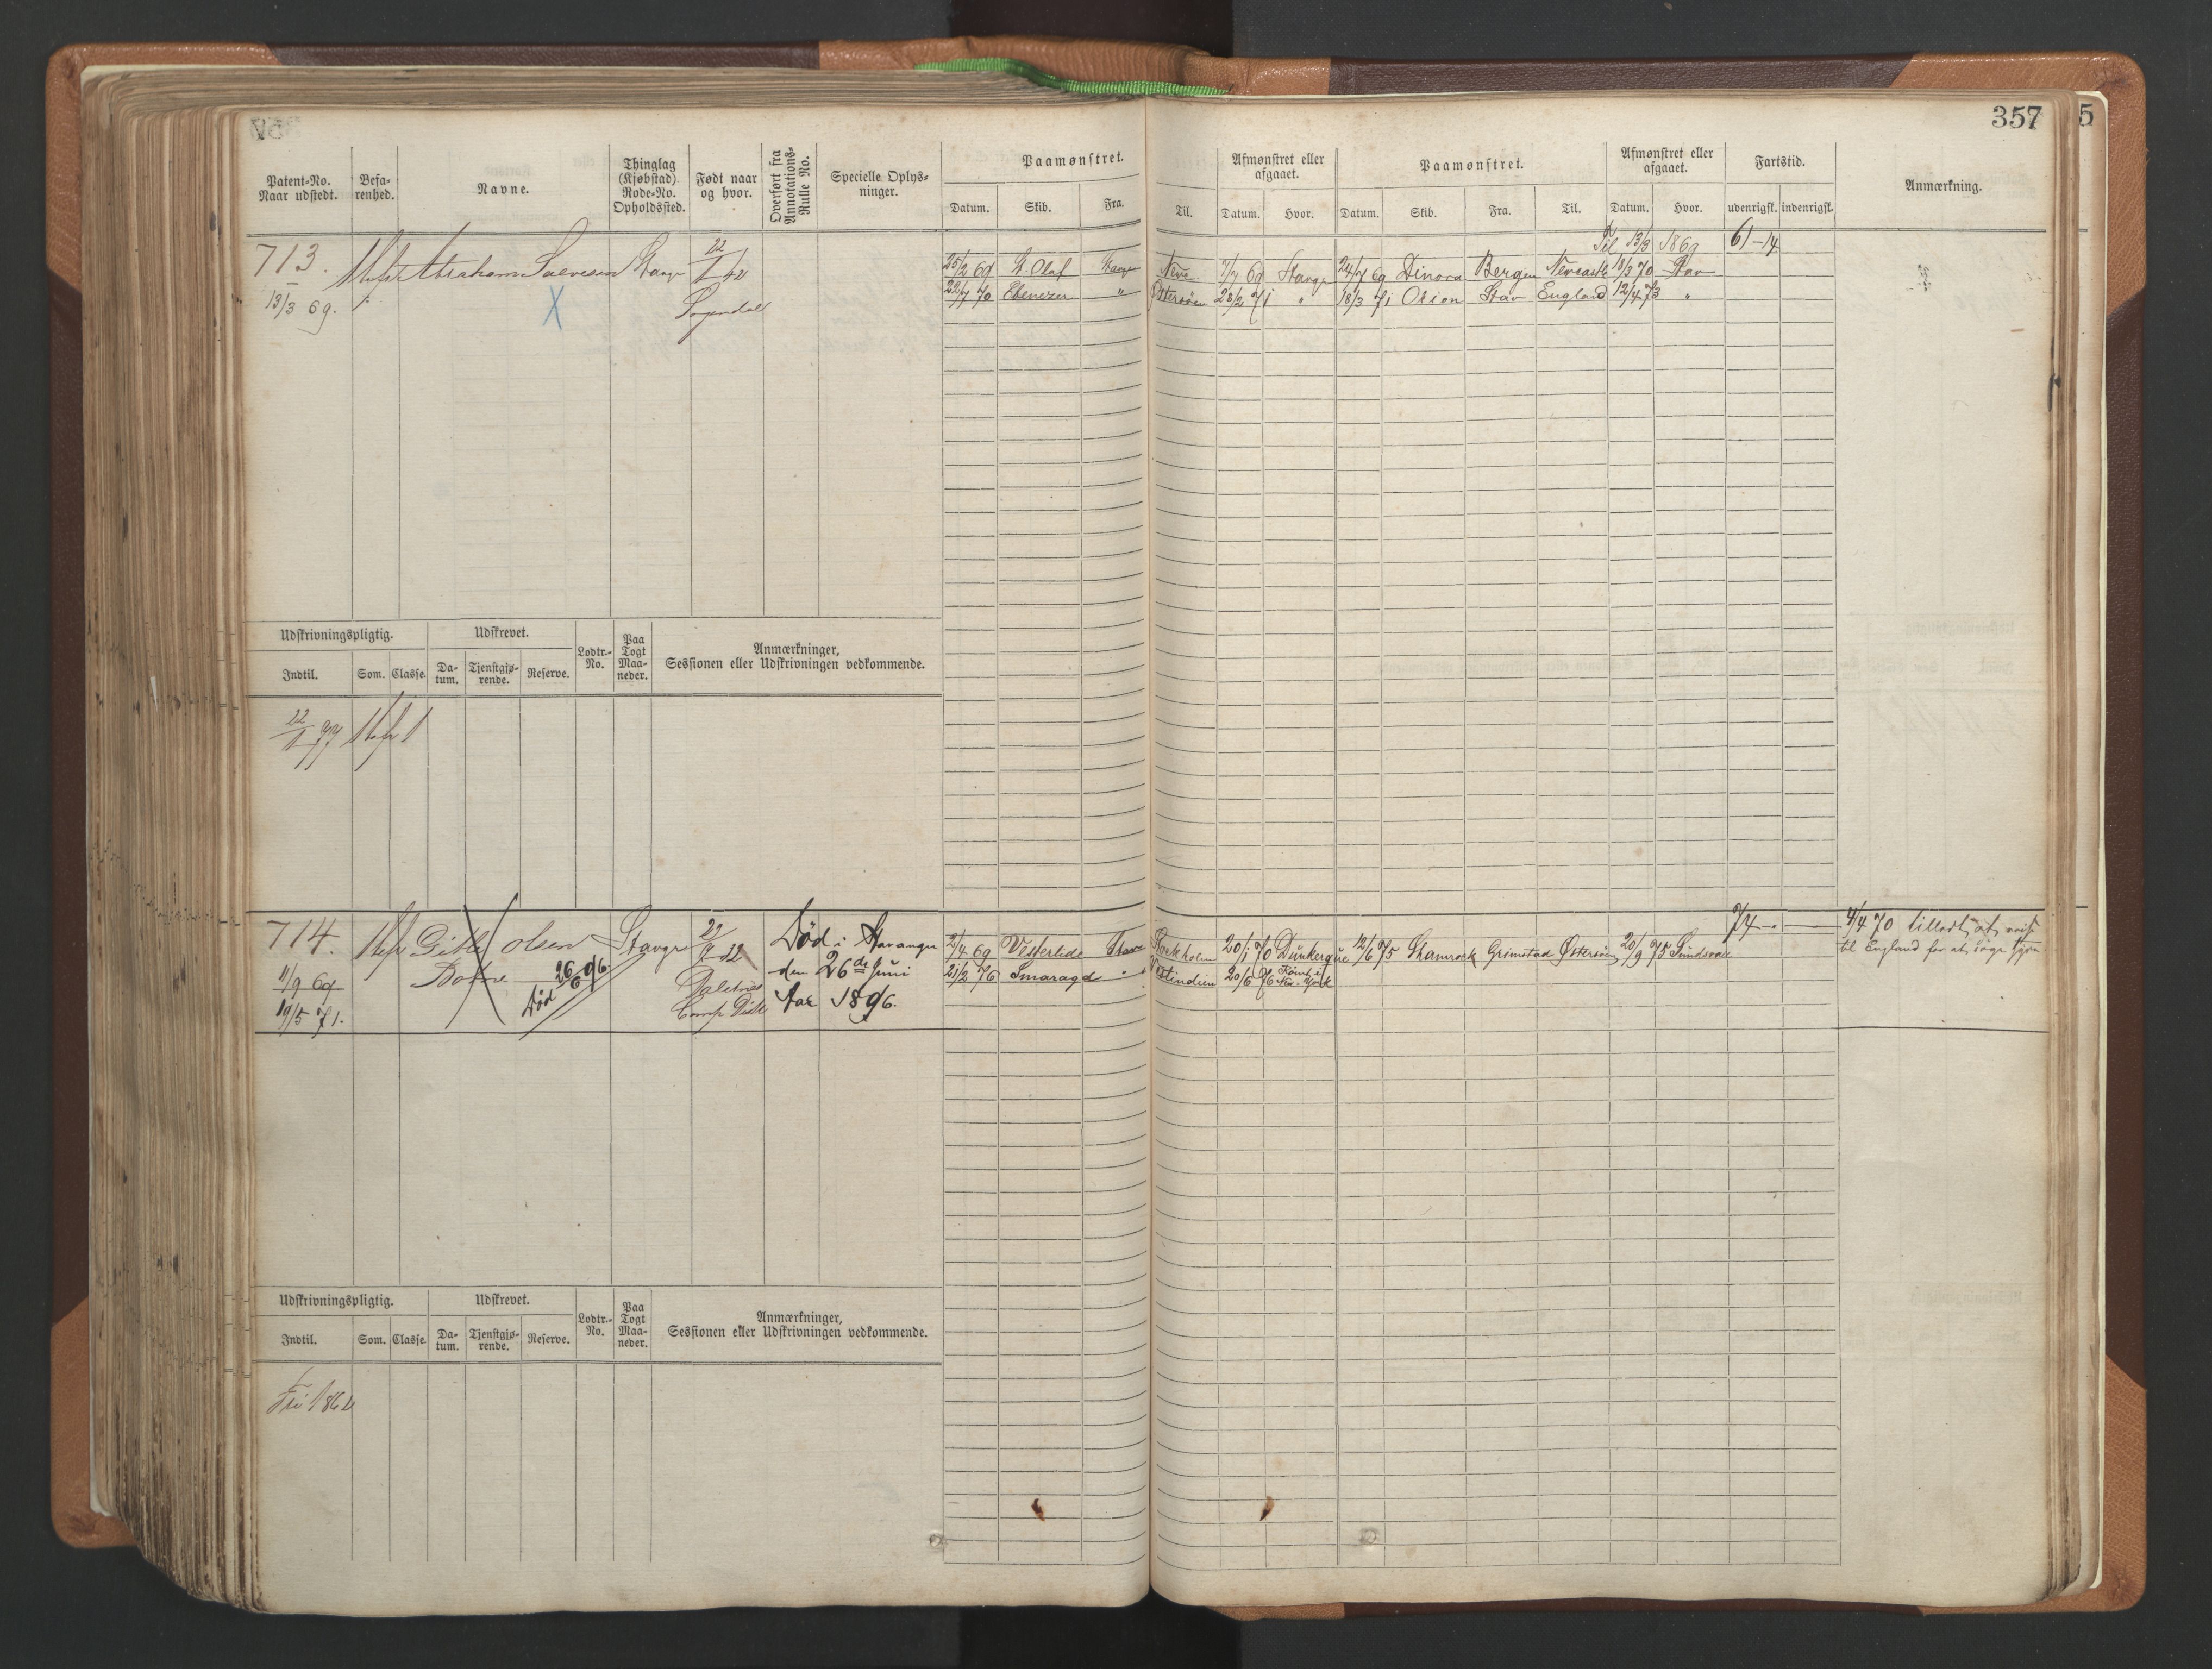 357
5
Patent-No.
Naar udstedt.
Befa-
renhed.
Navne.
Thinglag
(Kjøbstad).
Rode-No.
Opholdssted.
Født naar
og hvor.
Overført fra
Annotations-
Rulle No.
Specielle Oplys-
ninger.
Paamønstret.
Datum.
Skib.
Fra.
Til.
Afmønstret eller
afgaaet.
Datum.
Hvor.
Paamønstret.
Datum.
Skib.
Fra.
Til.
Afmønstret eller
afgaaet.
Datum.
Hvor.
Fartstid.
udenrigsk.
indenrigsk.
Anmærkning.
713.
13/3 69.
Abraham Salvesen
Stavgr
22/1 42
Sogndal
Til 13/3 1869
61-14
25/2 69 St. Olaf Stavgr
Newc. 7/7 69 Stavgr 24/7 69 Dinora Bergen Newcastle 18/3 70 Stav
22/7 70 Ebenezer "
Østersøen 28/2 71 " 18/3 71 Orion Stav England 12/4 73 "
Udskrivningspligtig.
Udskrevet.
Lodtr.-
No.
Paa
Togt
Maa-
neder.
Anmærkninger,
Sessionen eller Udskrivningen vedkommende.
Indtil.
Som.
Classe.
Da-
tum.
Tjenstgjø-
rende.
Reserve.
22/1 77
1
714.
11/9 69
19/5 71.
Olsen
Død 26/6 96
Stavgr
22/9 32
Død i Stavanger
den 26de Juni
Aar 1896.
2/4 69 Vestertide Stav
Stockholm 20/1 70 Dunkerque 12/6 75 Shamrock Grimstad Østersøen 20/9 75 Sundsvall
74
21/2 76 Smaragd " "
Vestindien 20/6 76 Rømt i
New-York
4/4 70 tilladt at reise
til England for at søge Hyre
Udskrivningspligtig.
Udskrevet.
Lodtr.-
No.
Paa
Togt
Maa-
neder.
Anmærkninger,
Sessionen eller Udskrivningen vedkommende.
Indtil.
Som.
Classe.
Da-
tum.
Tjenstgjø-
rende.
Reserve.
Fri